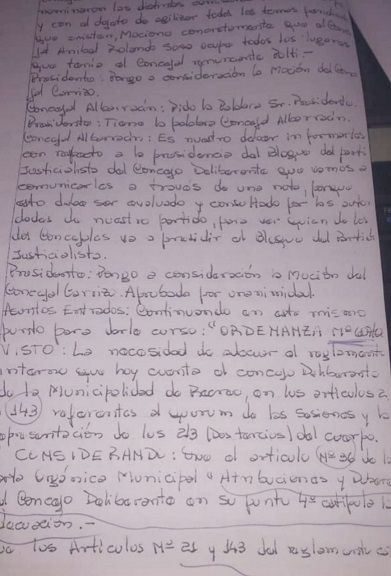 nominaron los distintos
y con el objeto de agilizar todos los temas
que existen, Mociono concretamente que el Conce
jal Anibal Rolando Sosa ocupe todos los lugares
que tenia el Concejal renunciante Politi.-
Presidente: Pongo a consideración la Moción del Conce
jal Carrizo.
Concejal Albarracin: Pido la Palabra Sr. Presidente.
Presidente: Tiene la palabra Concejal Albarracin.
Concejal Albarracin: Es nuestro deber informarles
con respecto a la presidencia del Bloque del parti
Justicialista del Concejo Deliberante que vamos a
comunicarles a través de una nota, porque
esto debe ser evaluado y consultado por las auto
dades de nuestro partido, para ver quien de los
dos Concejales va a presidir el Bloque del Partido
Justicialista.
Presidente: Pongo a consideración la Moción del
Concejal Carrizo. Aprobado por unanimidad.
Asuntos Entrados: Continuando en este mismo
punto para darle curso: "ORDENANZA Nº
VISTO: La necesidad de adecuar el reglamento
interno que hoy cuenta el concejo Deliberante
de la Municipalidad de Recreo, en los artículos 2
143 referentes al quorum de las Sesiones y la
presentación de los 2/3 (Dos tercios) del cuerpo.
CONSIDERANDO: Que el articulo Nº 36 de la
arta Orgánica Municipal "Atribuciones y Deberes
del Concejo Deliberante en su punto 4º estipula la
decuación.-
los Artículos Nº 21 y 143 del reglamento